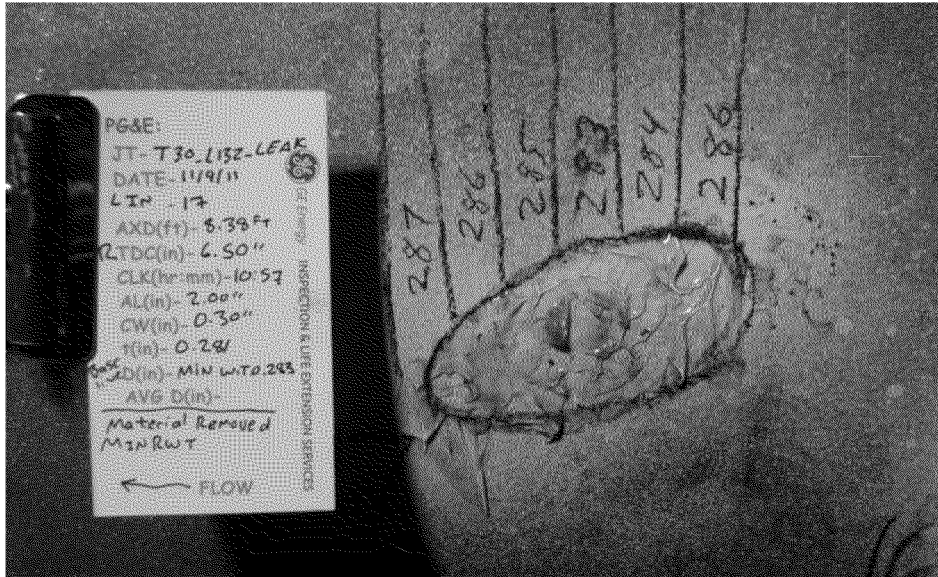 PG&E:
JT- T30_L132-LEAK
DATE- 11/9/11
LIN - 17
AXD(ft)- 8.38 FT
RTDC(in)- 6.50"
CLK(hr:mm)- 10:57
AL(in)- 2.00"
CW(in)- 0.30"
t(in)- 0.281
D(in)- MIN W.T.0.283
AVG D(in)-
Material Removed
MIN RWT
← FLOW
GE Energy INSPECTION & LIFE EXTENSION SERVICES
287
286
285
283
284
286